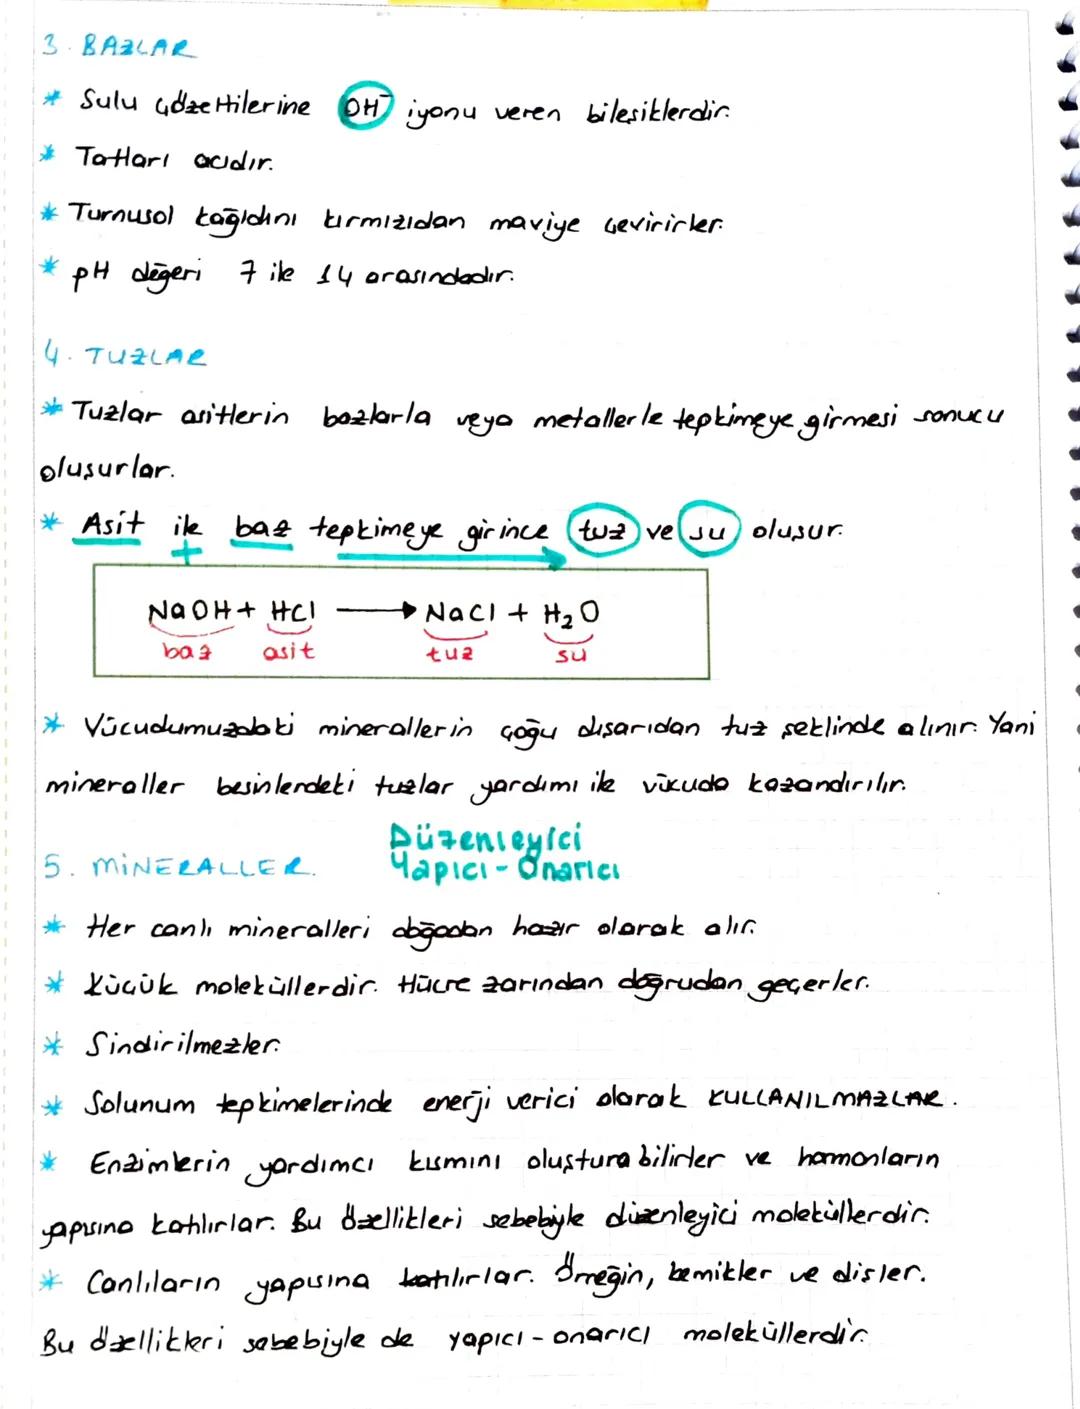 3. BAZLAR
* Sulu çözeltilerine OH⁻ iyonu veren bileşiklerdir.
* Tatları acıdır.
* Turnusol kağıdını kırmızıdan maviye çevirirler.
* pH değeri 7 ile 14 arasındadır.
4. TUZLAR
* Tuzlar asitlerin bazlarla veya metallerle tepkimeye girmesi sonucu
oluşurlar.
* Asit ile baz tepkimeye girince tuz ve su oluşur.
+
NaOH + HCl → NaCl + H₂O
baz asit tuz su
* Vücudumuzdaki minerallerin çoğu dışarıdan tuz şeklinde alınır. Yani
mineraller besinlerdeki tuzlar yardımı ile vücuda kazandırılır.
Düzenleyici
5. MİNERALLER. Yapıcı - Onarıcı
* Her canlı mineralleri doğadan hazır olarak alır.
* Küçük moleküllerdir. Hücre zarından doğrudan geçerler.
* Sindirilmezler.
* Solunum tepkimelerinde enerji verici olarak KULLANILMAZLAR.
* Enzimlerin yardımcı kısmını oluşturabilirler ve hormonların
yapısına katılırlar. Bu özellikleri sebebiyle düzenleyici moleküllerdir.
* Canlıların yapısına katılırlar. Örneğin, kemikler ve dişler.
Bu özellikleri sebebiyle de yapıcı - onarıcı moleküllerdir.